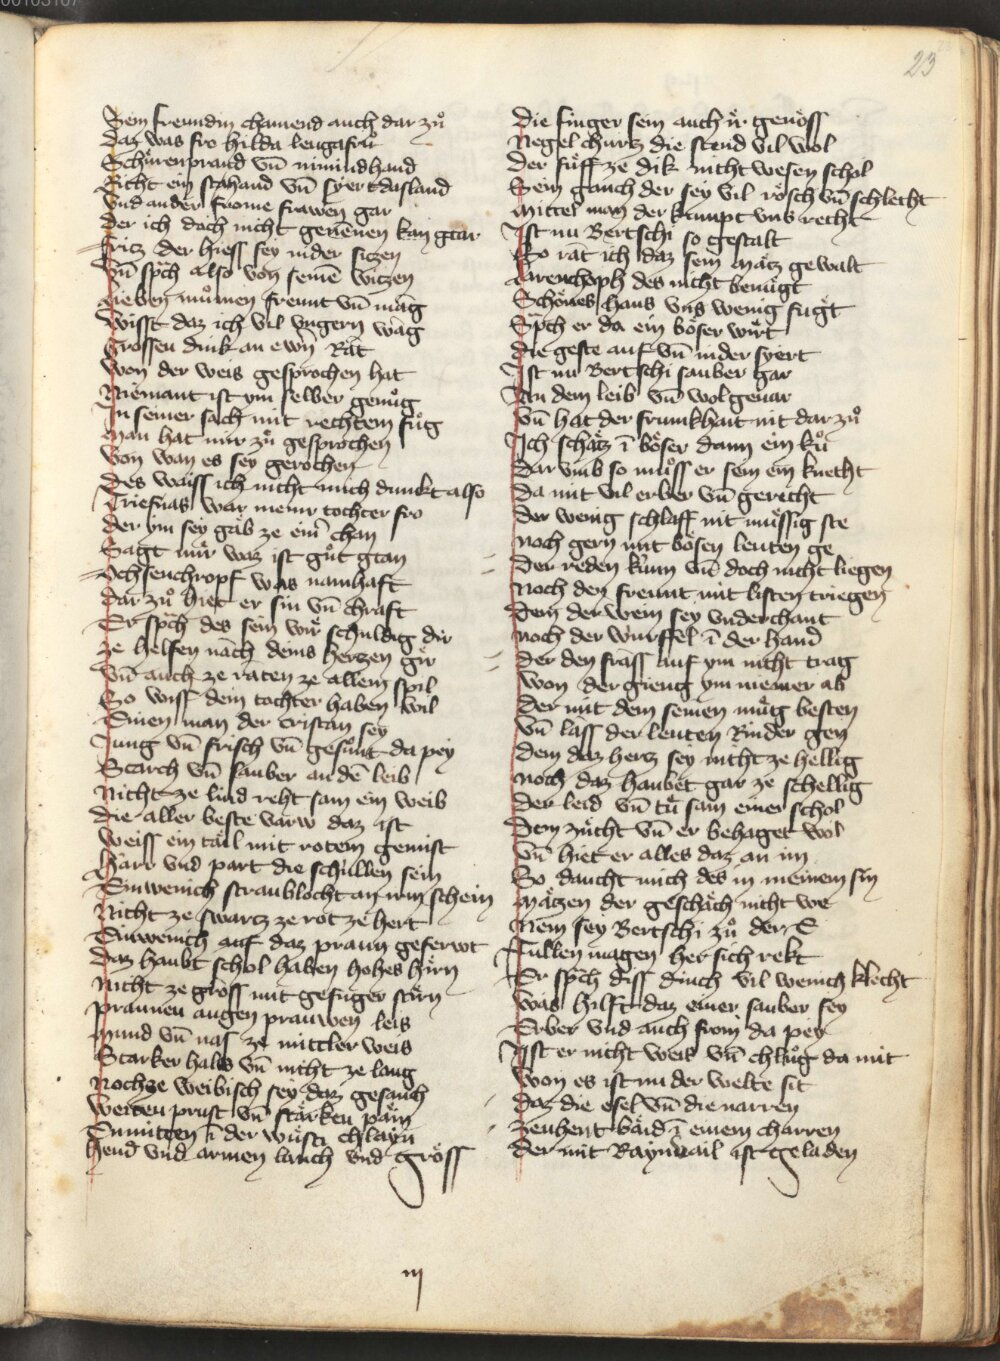 00103107
23
Sein freundin chamend auch dar zuͦ
Daz was fro hilda leugafruͦ
Schürenprand vn̄ nimindhand
Sicht ein stahand vn̄ syert dasland
Vnd ander frome frawen gar
Der ich doch nicht genēnen kan gtar
Fritz der hiess sey nider sitzen
Vn̄ sp̄ch also von seinē witzen
Lieben muͦmen freunt vn̄ mag
Wisst daz ich vil vngern wag
Grossen dink an ewrn Rät
Won der weis gesprochen hat
Niemant ist ym selber genuͦg
In seiner sach mit rechtem fuͦg
Man hat mir zuͦ gesprochen
Von wan es sey gerochen
Des waiss ich nicht mich dunkt also
Triefnas war meinr tochter fro
Der ym sey gäb ze eim chan
Sagt mir waz ist guͦt gtan
Ochsenchropf was namhaft
Dar zuͦ hiet er sin vn̄ chraft
Er sp̄ch des sein wir schuldig dir
ze helfen nach deins hertzen gir
Vn̄ auch ze raten ze allem spil
So wiss dein tochter haben wil
Einen man der cristan sey
Jung vn̄ frisch vn̄ gesunt da pey
Starch vn̄ sauber an dē leib
Nicht ze lind reht sam ein weib
Die aller beste varw daz ist
Weiss ein tail mit rotem gemist
Harr vnd part die schullen sein
Ein wenich straublocht an irm schein
Nicht ze swartz ze rot ze hert
Ein wenich auf daz praun geferwt
Daz haubt schol haben hohes hirn
Nicht ze gross mit gefuger stirn
Praunen augen prauwen leis
Mund vn̄ nas ze mittler weis
Starker hals vn̄ nicht ze lang
Noch ze weibisch sey daz gesanch
Weiten prust vn̄ starken pain
Enmitten ī der wuͤsti chlain
Hend vnd armen lanch vnd gröss
Die finger sein auch ir genöss
Negel churtz die stend vil wol
Der fuͤss ze dik nicht wesen schol
Sein ganch der sey vil rösch vn̄ schlecht
Mittel man der kumpt vns recht
Ist nu Bertschi so gestalt
So rät ich daz sein Mätz gewalt
Farenchoph des nicht benuͤgt
Schönes haus vns wenig fuͤgt
Sp̄ch er da ein böser wirt
Die geste auf vn̄ nider syert
Ist nu Bertschi sauber gar
An dem leib vn̄ wolgevar
Vn̄ hat der frumkhait nit dar zuͦ
Ich schätz ī böser dann ein kuͦ
Dar vmb so muͦss er sein ein knecht
Da mit vil erber vn̄ gerecht
Der wenig schlaff nit muͤssig ste
Noch gern mit bösen leuten ge
Der reden kunn vn̄ doch nicht liegen
Noch den freunt mit listen triegen
Dem der wein sey vnderchant
Noch der wurffel ī der hand
Der den fräss auf ym nicht trag
Won der gieng ym niemer ab
Der mit dem seinen muͤg besten
Vn̄ läss der leuten Rinder gen
Dem daz hertz sey nicht ze hellig
Noch daz haubet gar ze schellig
Der leid vn̄ tuͤ sam einer schol
Dem zucht vn̄ er behaget wol
Vn̄ hiet er alles daz an im
So daucht mich des in meinem sin
Mätzen der geschäch nicht we
Nem sey Bertschi zuͦ der E
Fullenmagen her sich rekt
Er sp̄ch diss dinch vil wenich klecht
Was hilft daz einer sauber sey
Erber vnd auch from da pey
Ist er nicht weis vn̄ chluͦg da mit
Won es ist nu der welte sit
Daz die esel vn̄ die narren
Zeuhent baid ī einem charren
Der mit Rayuvail ist geladen
iij